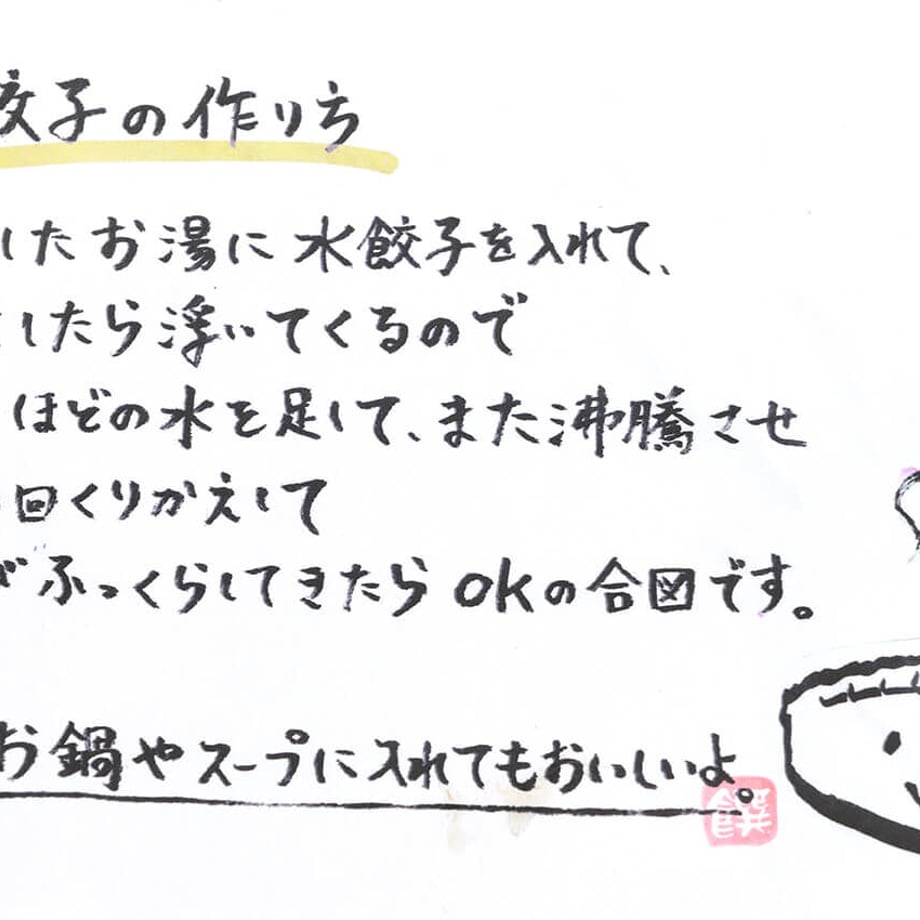 餃子の作り方
したお湯に水餃子を入れて、
したら浮いてくるので
ほどの水を足して、また沸騰させ
回くりかえして
がふっくらしてきたらOKの合図です。
お鍋やスープに入れてもおいしいよ。
饌